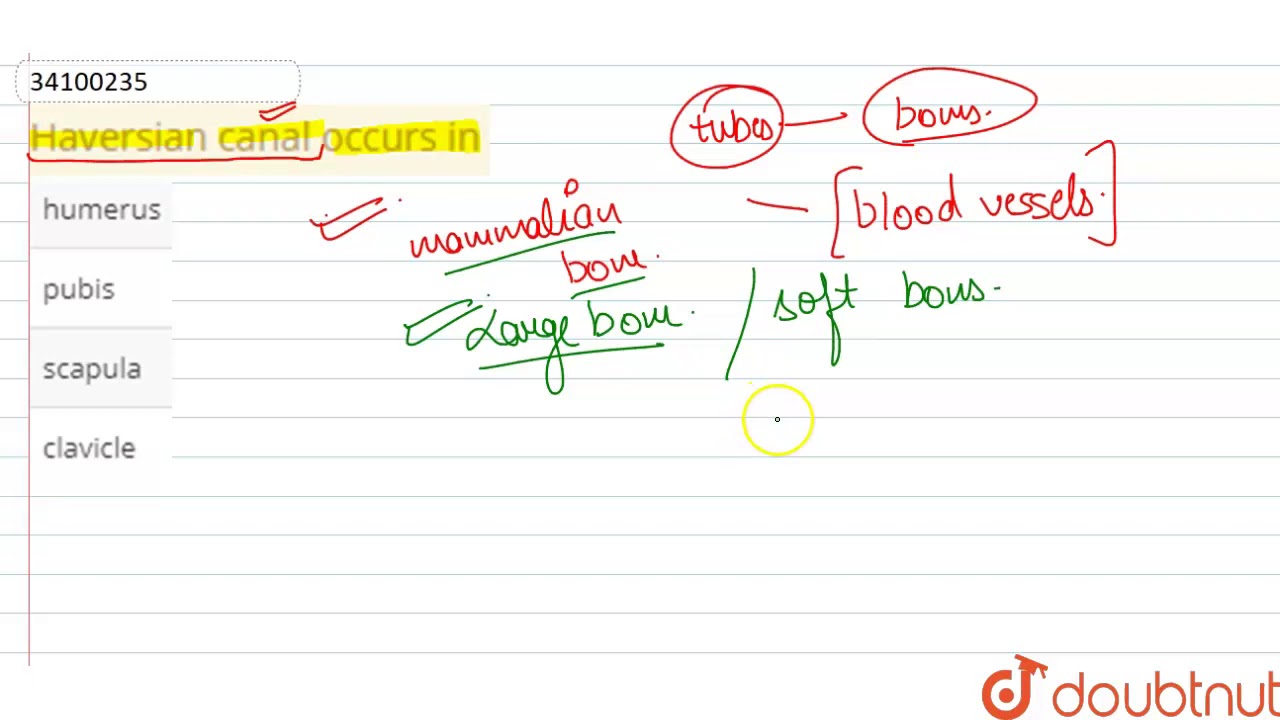 34100235
Haversian canal occurs in
humerus
pubis
scapula
clavicle
tubes — bones.
— [blood vessels.]
mammalian
bone.
Large bone. / soft bones.
doubtnut